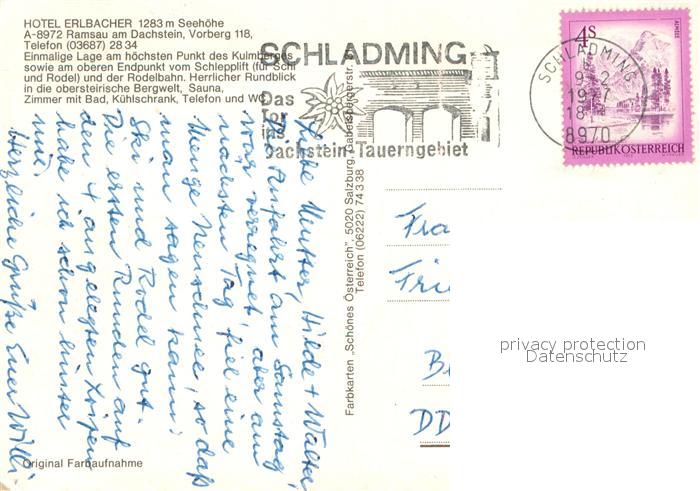 HOTEL ERLBACHER 1283 m Seehöhe
A-8972 Ramsau am Dachstein, Vorberg 118,
Telefon (03687) 28 34
Einmalige Lage am höchsten Punkt des Kulmberges
sowie am oberen Endpunkt vom Schlepplift (für Schi
und Rodel) und der Rodelbahn. Herrlicher Rundblick
in die obersteirische Bergwelt, Sauna,
Zimmer mit Bad, Kühlschrank, Telefon und WC
SCHLADMING
Das
Tor
ins
Dachstein-Tauerngebiet
SCHLADMING
8970
4S
ALMSEE
REPUBLIK ÖSTERREICH
Liebe Mutter, Hilde + Walter
Die Anfahrt am Samstag,
war verregnet, aber am
nächsten Tag fiel eine
Menge Neuschnee, so daß
man sagen kann:
Ski und Rodel gut.
Die ersten Runden auf
den 4 angelegten Loipen
habe ich schon hinter
mir.
Herzliche Grüße Euer Willi
Farbkarten „Schönes Österreich", 5020 Salzburg, Gabelsbergerstr.
Telefon (06222) 74 3 38
Fra
Fri
B
DD
privacy protection
Datenschutz
Original Farbaufnahme